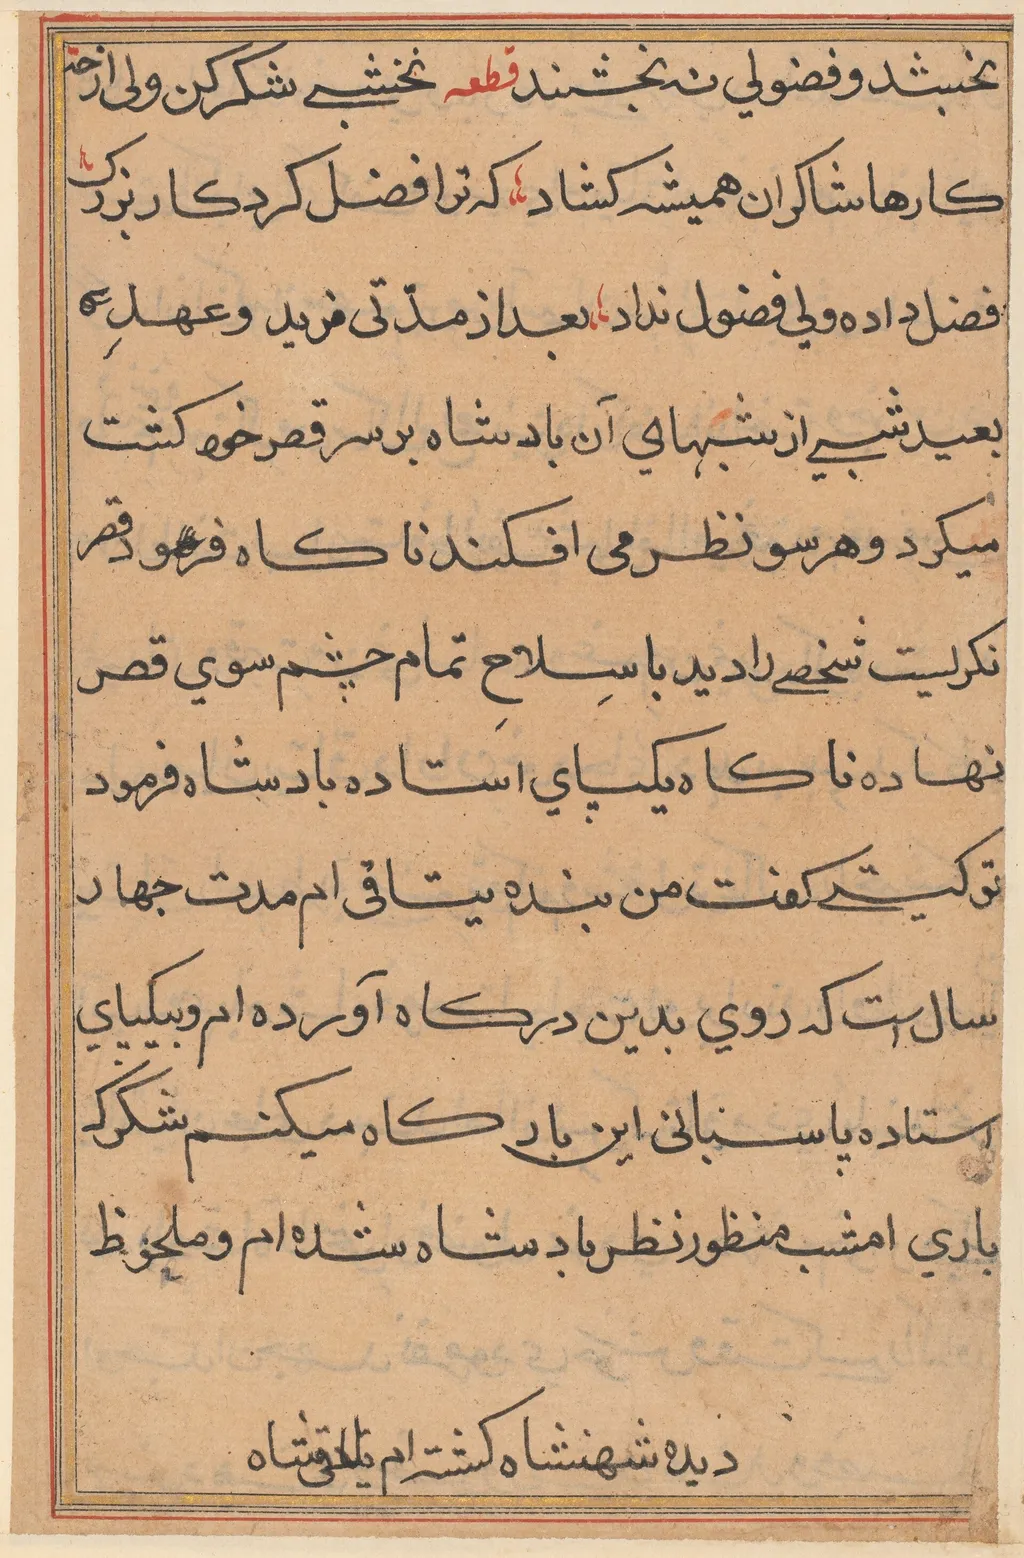 بخشد و فضولي نه بخشند قطعه نخشبے شکر کن ولی از حق
کارها شاکران همیشه کشاد که ترا فضل کرد کار بزرک
فضل داده ولي فضول نداد بعد از مدّتی مزید و عهدِے
بعید شبے از شبهاي آن بادشاه بر سر قصر خود کشت
میکرد و هر سو نظر می افکند ناکاه فرود قصر
نکریست شخصے را دید با سِلاحِ تمام چشم سوي قصر
نهاده ناکاه یکپاي استاده بادشاه فرمود
تو کیستے کفت من بنده یتاقی ام مدت چهار
سال است که روي بدین درکاه آورده ام و بیکپاي
استاده پاسبانی این بارکاه میکنم شکر که
باري امشب منظور نظر بادشاه شده ام و ملحوظ
دیده شهنشاه کشته ام بادشاه